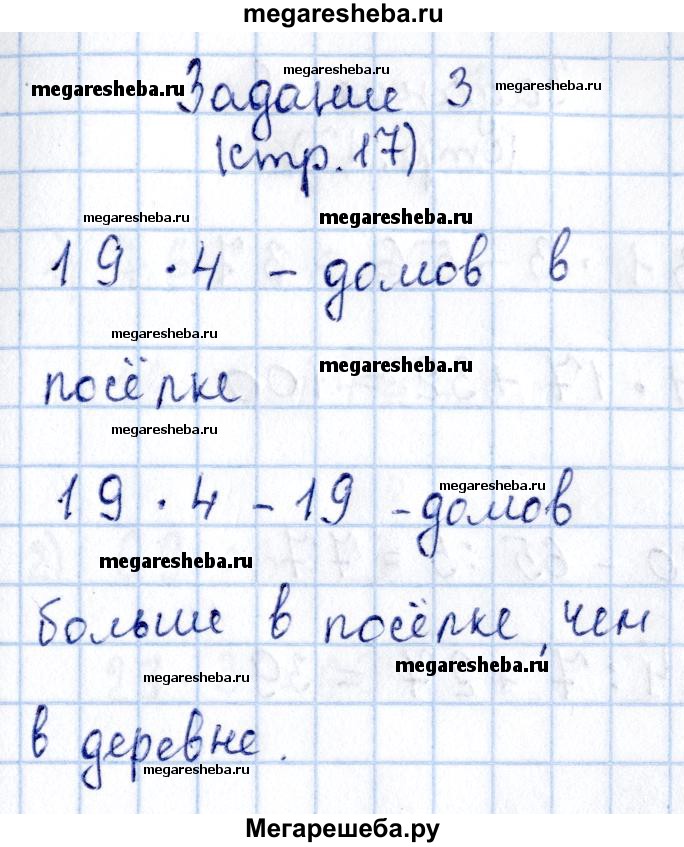 megaresheba.ru
megaresheba.ru
megaresheba.ru megaresheba.ru
Задание 3
(стр. 17)
megaresheba.ru megaresheba.ru
19 · 4 – домов в
megaresheba.ru
посёлке megaresheba.ru
megaresheba.ru
megaresheba.ru
19 · 4 – 19 – домов
megaresheba.ru
больше в посёлке, чем
megaresheba.ru
megaresheba.ru
в деревне.
megaresheba.ru
Мегарешеба.ру